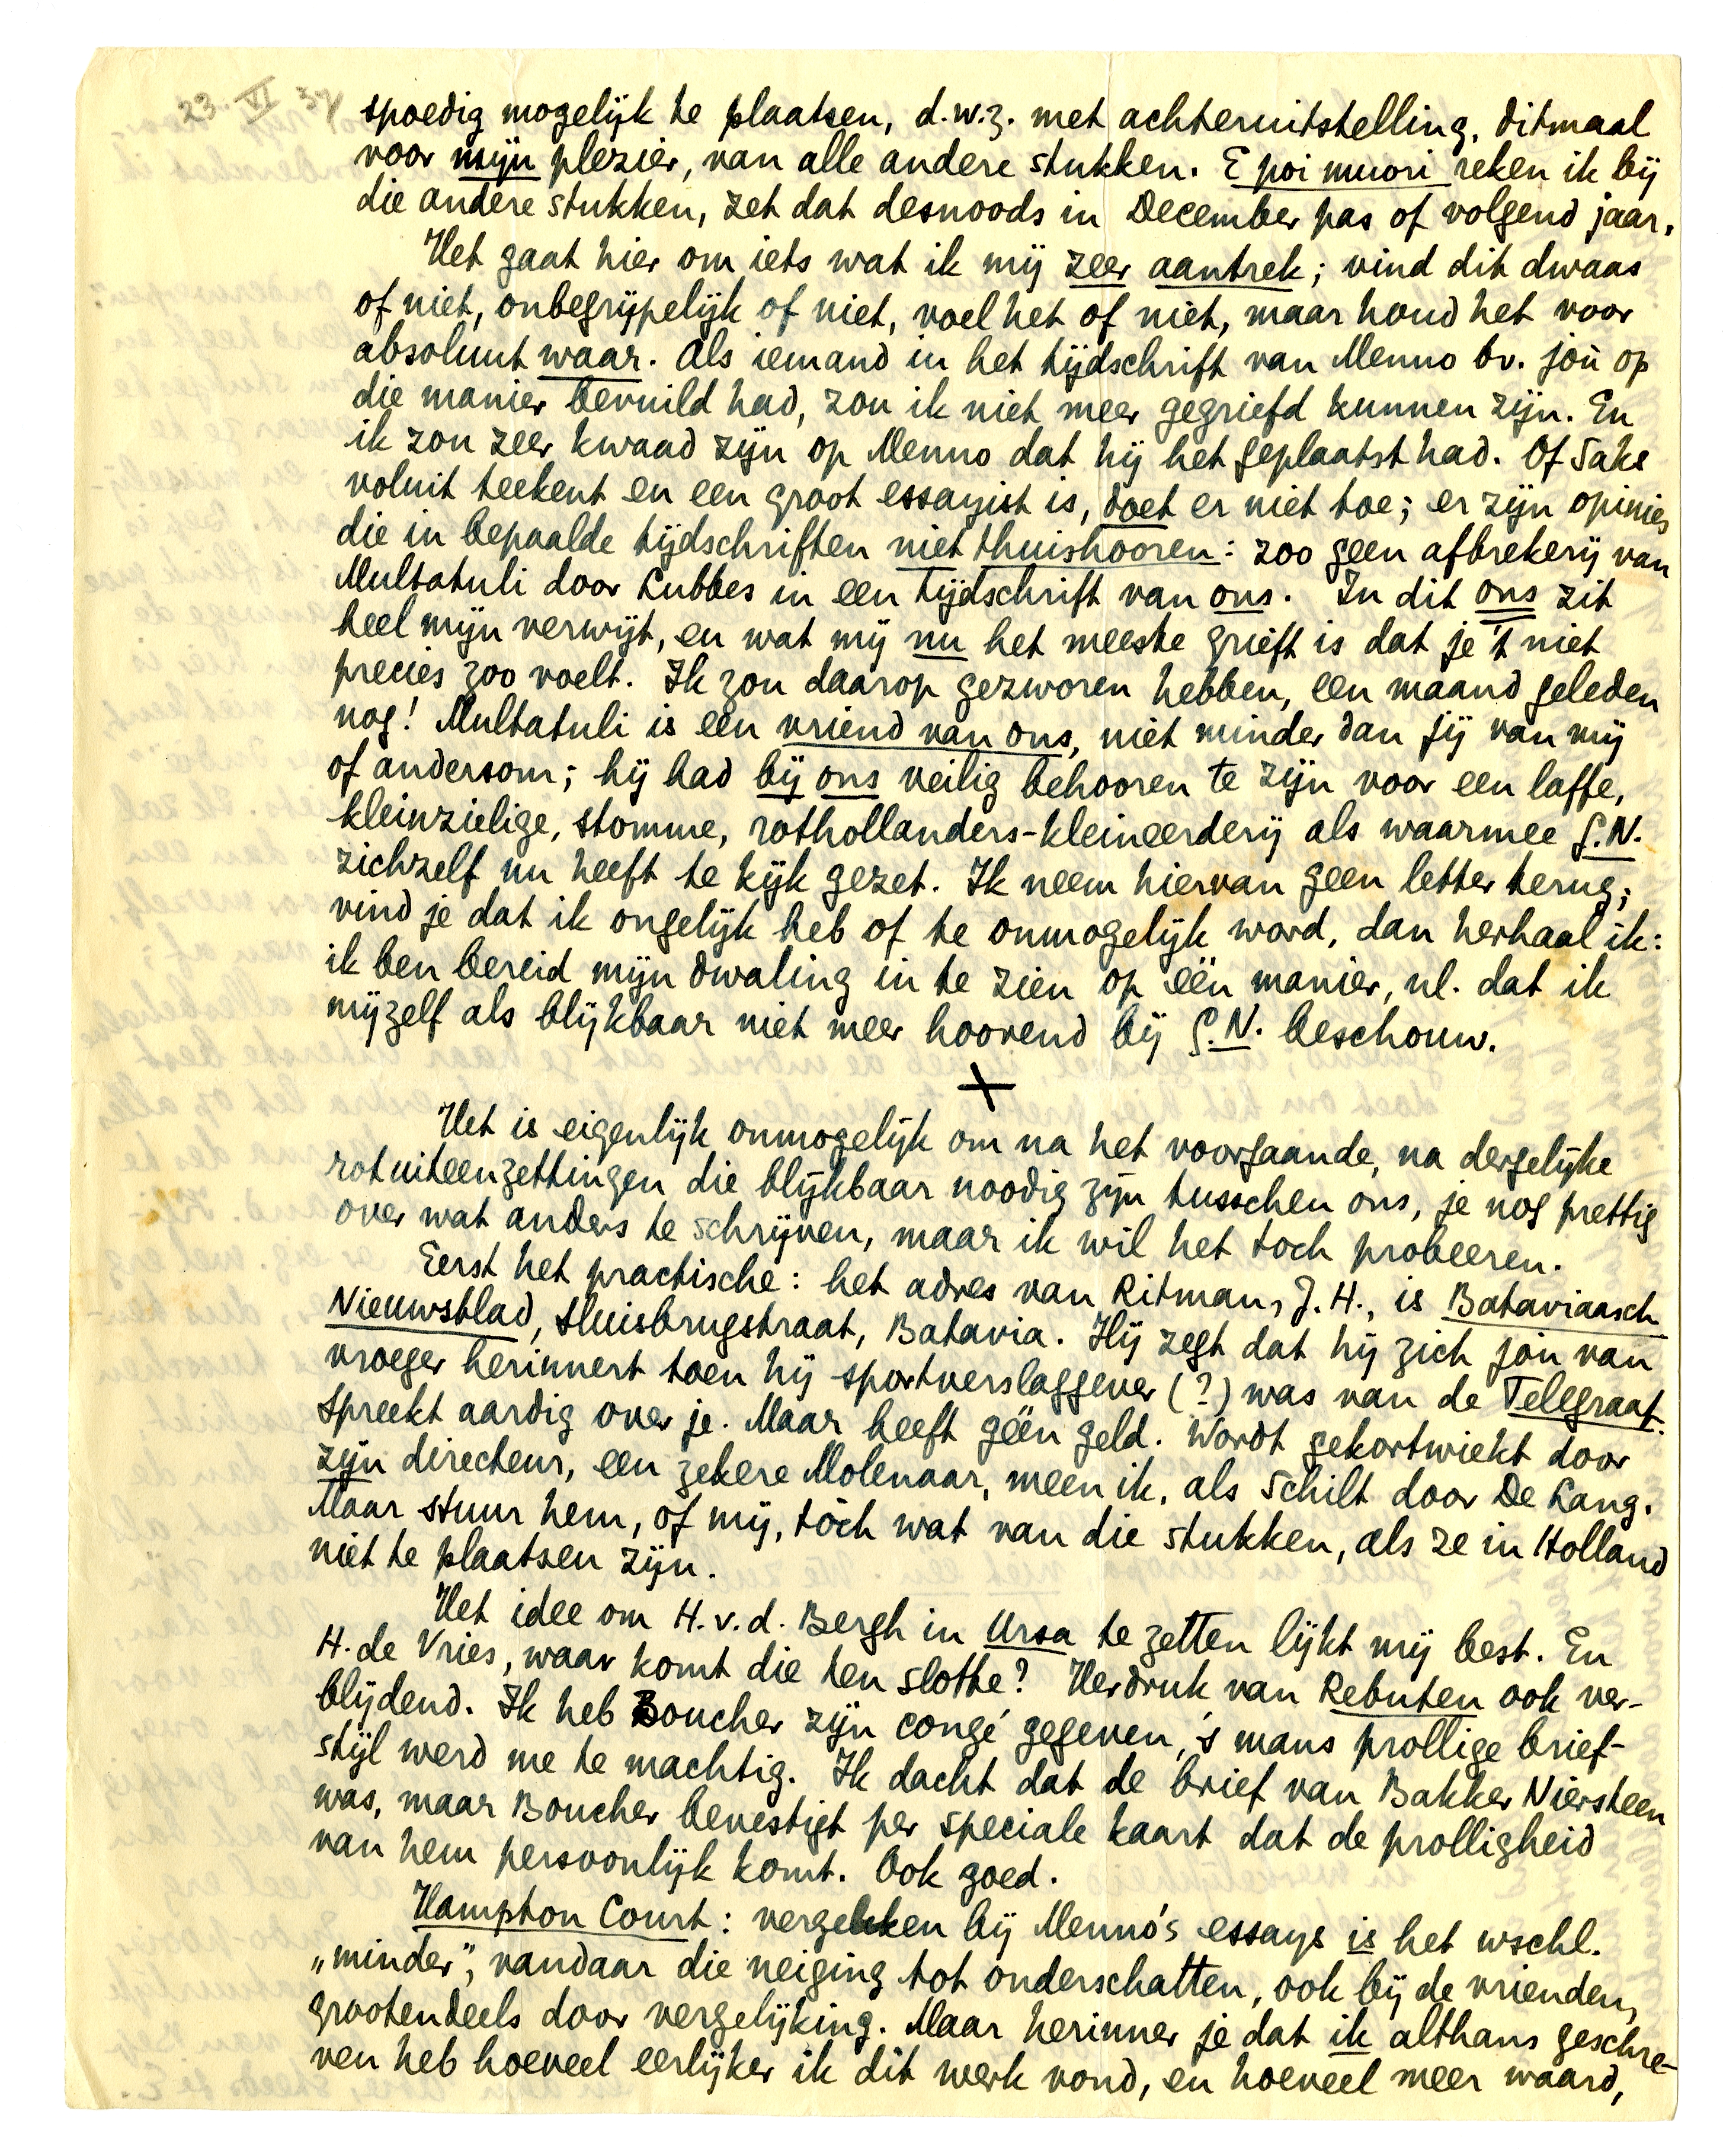 23. VI 37
spoedig mogelijk te plaatsen, d.w.z. met achteruitstelling, ditmaal
voor mijn plezier, van alle andere stukken. E poi muori reken ik bij
die andere stukken, zet dat desnoods in December pas of volgend jaar.
Het gaat hier om iets wat ik mij zeer aantrek; vind dit dwaas
of niet, onbegrijpelijk of niet, voel het of niet, maar houd het voor
absoluut waar. Als iemand in het tijdschrift van Menno bv. joù op
die manier bevuild had, zou ik niet meer gegriefd kunnen zijn. En
ik zou zeer kwaad zijn op Menno dat hij het geplaatst had. Of Saks
voluit teekent en een groot essayist is, doet er niet toe; er zijn opinies
die in bepaalde tijdschriften niet thuishooren: zoo geen afbrekerij van
Multatuli door Lubbes in een tijdschrift van ons. In dit ons zit
heel mijn verwijt, en wat mij nu het meeste grieft is dat je 't niet
precies zoo voelt. Ik zou daarop gezworen hebben, een maand geleden
nog! Multatuli is een vriend van ons, niet minder dan jij van mij
of andersom; hij had bij ons veilig behooren te zijn voor een laffe,
kleinzielige, stomme, rothollanders-kleineerderij als waarmee G.N.
zichzelf nu heeft te kijk gezet. Ik neem hiervan geen letter terug;
vind je dat ik ongelijk heb of te onmogelijk word, dan herhaal ik:
ik ben bereid mijn dwaling in te zien op één manier, nl. dat ik
mijzelf als blijkbaar niet meer hoorend bij G.N. beschouw.
+
Het is eigenlijk onmogelijk om na het voorgaande, na dergelijke
rotuiteenzettingen die blijkbaar noodig zijn tusschen ons, je nog prettig
over wat anders te schrijven, maar ik wil het toch probeeren.
Eerst het practische: het adres van Ritman, J.H., is Bataviaasch
Nieuwsblad, Sluisbrugstraat, Batavia. Hij zegt dat hij zich joù van
vroeger herinnert toen hij sportverslaggever (?) was van de Telegraaf.
Spreekt aardig over je. Maar heeft géén geld. Wordt gekortwiekt door
zijn directeur, een zekere Molenaar, meen ik, als Schilt door De Lang.
Maar stuur hem, of mij, tòch wat van die stukken, als ze in Holland
niet te plaatsen zijn.
Het idee om H.v.d. Bergh in Ursa te zetten lijkt mij best. En
H. de Vries, waar komt die ten slotte? Herdruk van Rebuten ook ver-
blijdend. Ik heb Boucher zijn congé gegeven, 's mans prollige brief-
stijl werd me te machtig. Ik dacht dat de brief van Bakker Niersteen
was, maar Boucher bevestigt per speciale kaart dat de prolligheid
van hem persoonlijk komt. Ook goed.
Hampton Court: vergeleken bij Menno's essays is het wschl.
„minder", vandaar die neiging tot onderschatten, ook bij de vrienden,
grootendeels door vergelijking. Maar herinner je dat ik althans geschre-
ven heb hoeveel eerlijker ik dit werk vond, en hoeveel meer waard,